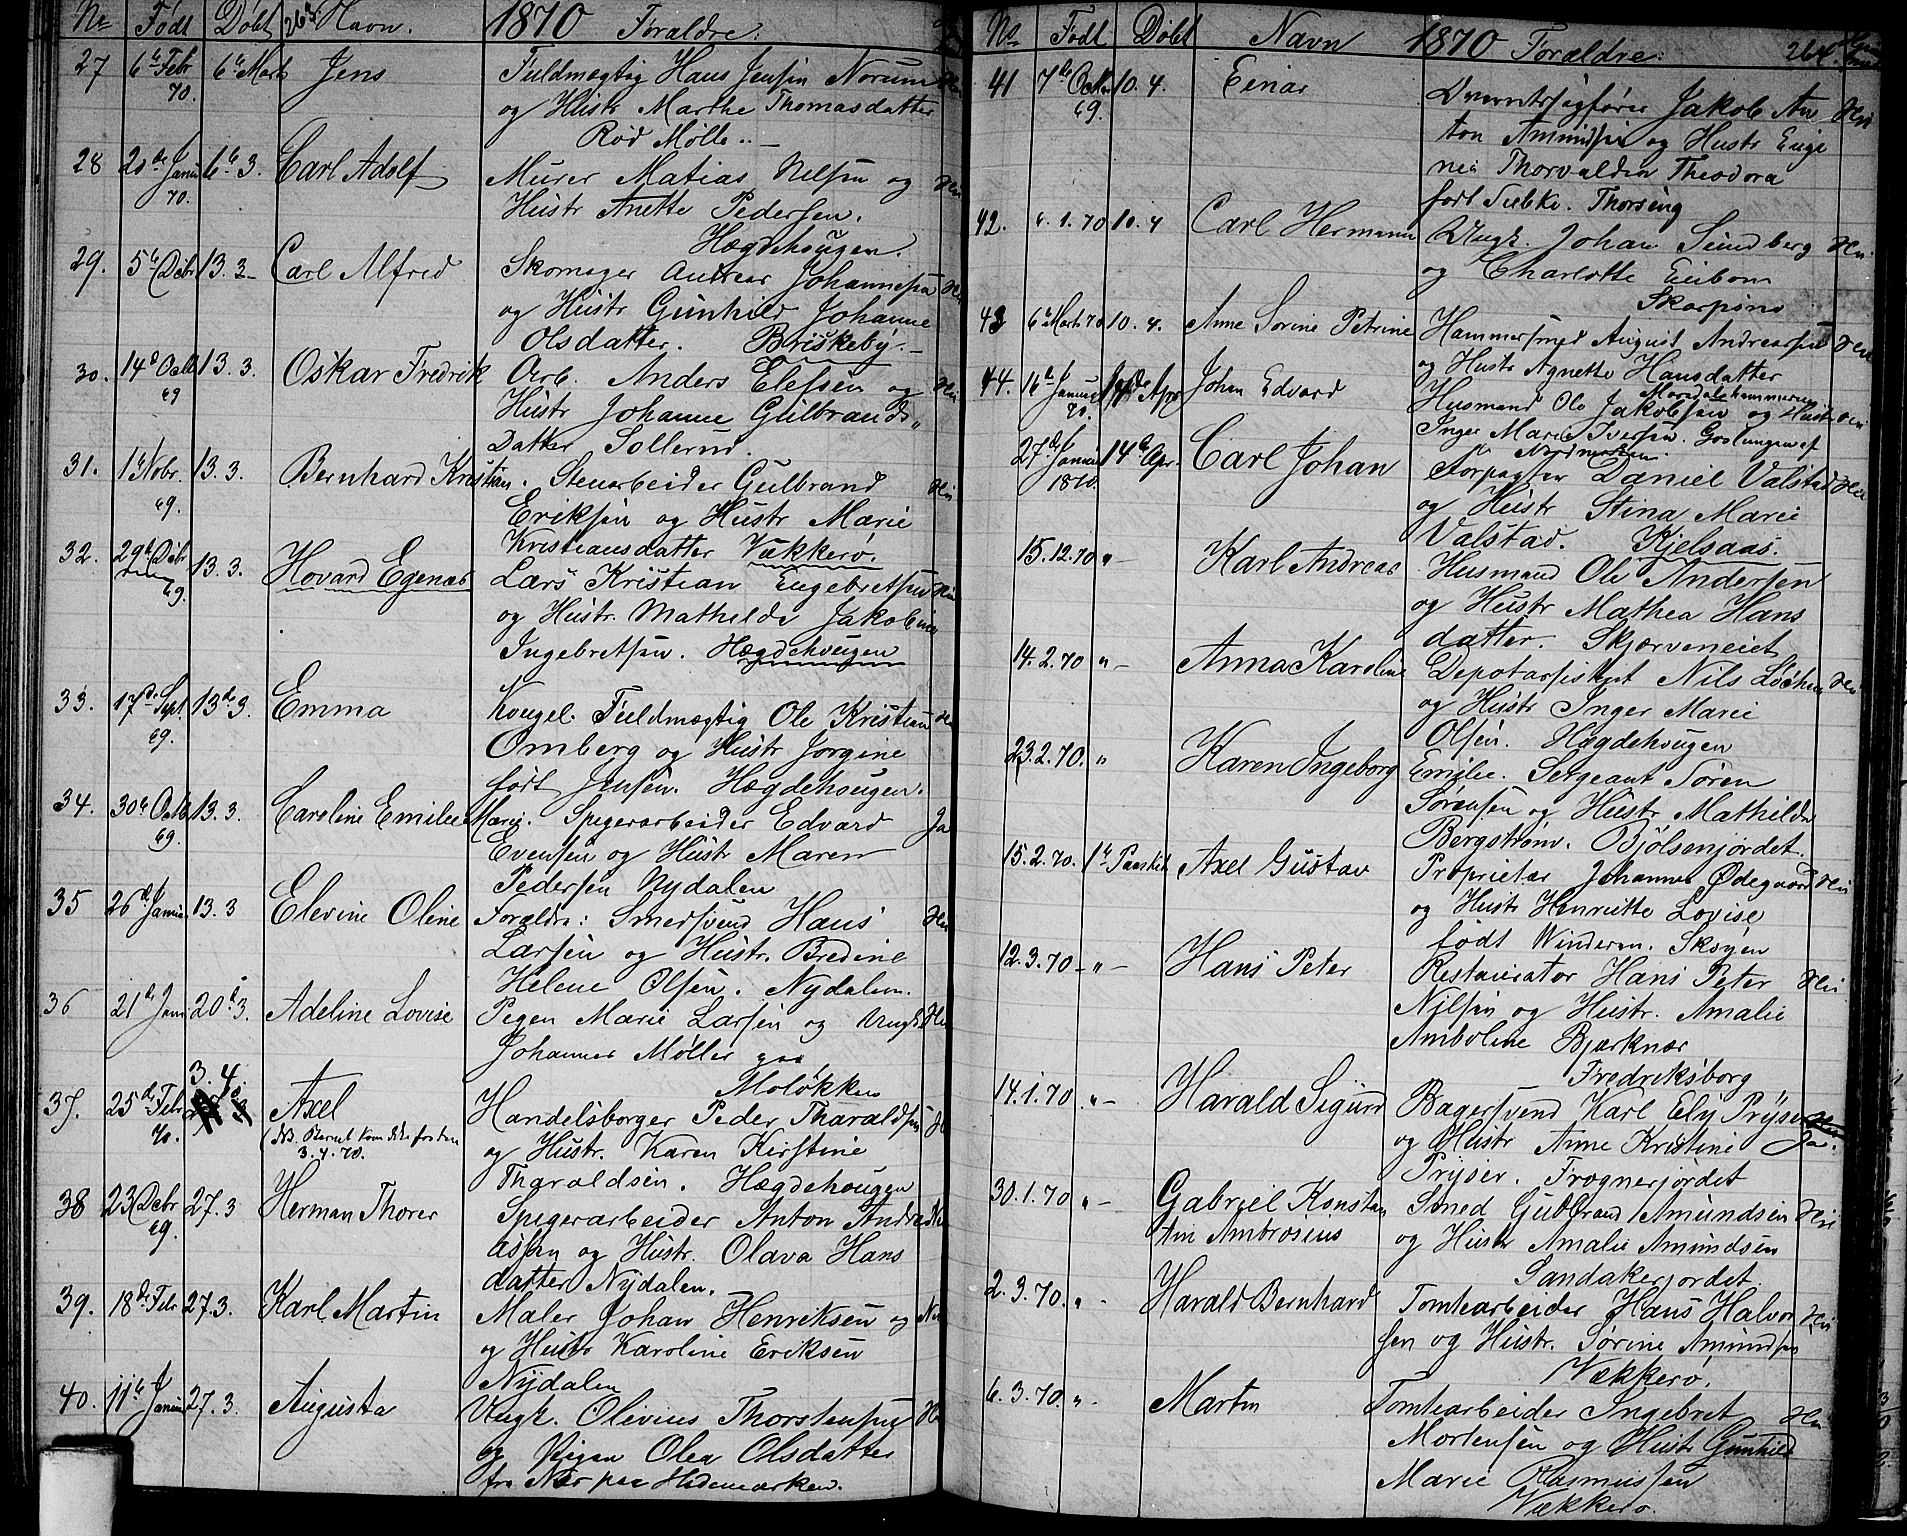 No Födt Döbt 263 Navn. 1870 Foraldre:
27 6te Febr 70. 6te Mart Jens Fuldmægtig Hans Jensen Norum
og Hustr Marthe Thomasdatter
Röd Mølle
28 6te 3. Carl Adolf Murer Matias Nelsen og
70. Hustr Anette Pedersen.
Hægdehougen.
29. 5te Debr 13. 3 Carl Alfred Skomager Andreas Johannesen
og Hustr Gunhild Johanne
Olsdatter. Briskeby.
30. 14de Octb 69 13. 3. Oskar Fredrik Arb. Anders Elefsen og
Hustr Johanne Gulbrands
Datter Sollerud.
31. 1te Nobr. 69. 13. 3. Bernhard Kristian. Stenarbeider Gulbrand
Eriksen og Hustr Marie
Kristiansdatter Vækkerö.
32. 29de Debr 69. 13. 3. Hovard Egenæs Lars Kristian Engebretsen
og Hustr. Mathilde Jakobine
Ingebretsen. Hægdehougen
33. 17de Sept. 69. 13de 3. Emma Kongel. Fuldmægtig Ole Kristian
Omberg og Hustr Jorgine
födt Jensen. Hægdehougen.
34. 30te Octb 69. 13. 3. Caroline Emilie Marie. Spigerarbeider Edvard Ja
Evensen og Hustr Maren
Pedersen Nydalen
35 26de Janu. 13. 3 Elevine Oline Foraldre: Smedsvend Hans
Larsen og Hustr. Bredine
Helene Olsen. Nydalen.
36 21de Janu 20de 3. Adeline Lovise Pegen Marie Larsen og Ungk.
Johannes Møller paa
Molökken
37. 25de Febr 70. 3. 4. Axel Handelsborger Peder Tharaldsen
(NB. Barnet kom ikke før den
3. 4. 70. og Hustr. Karen Kirstine
Tharaldsen. Hægdehougen
38 23 Debr 69. 27. 3 Herman Thorer Spigerarbeider Anton Andre
assen og Hustr. Olava Hans
datter Nydalen.
39. 18de Febr 27. 3. Karl Martin Maler Johan Henriksen og
og Hustr Karoline Eriksen
Nydalen
40. 11te Janu 27. 3. Augusta Ungk. Olivius Thorstensen
og Pigen Olea Olsdatter
fra Næs paa Hedemarken.
No Födt Döbt Navn 1870 Forældre: 264.
41 7de Octbr 69. 10. 4. Einar Overretssagfører Jakob An
ton Amundsen og Hustr Euge
nia Thorvaldin Theodora
født Thorseng
42. 6. 1. 70 10. 4 Carl Hermann Ungk. Johan Sundberg
og Charlotte
Skarpsno
43 6te Mart 70 10. 4. Anne Sorine Petrine Hammersmed August Andreasen
og Hustr Agnette Hansdatter
44. 16de Januar 70. Apr Johan Edvard Husmand Ole Jakobsen og Hustr
Inger Marie Iversen.
Nordmarken.
27de Januar 1870. 14de Apr. Carl Johan Forpagter Daniel Valstad
og Hustr Stina Marie
Valstad. Kjelsaas.
15. 12. 70 " Karl Andreas Husmand Ole Andersen
og Hustr Mathea Hans
datter. Skjærveneiet
14. 2. 70 " Anna Karoline Depotarsistent Nils Löchen
og Hustr Inger Marie
Olsen. Hægdehougen
23. 2. 70. " Karen Ingeborg Emilie. Sergeant Sören
Sörensen og Hustr Mathilde
Bergström. Bjölsenjordet.
15. 2. 70. 1te Paaskd Axel Gustav Proprietær Johannes Ødegaard
og Hustr Henriette Lovise
födt Winderen. Sköyen
12. 3. 70 " Hans Peter Restauratör Hans Peter
Nilsen og Hustr. Amalie
Amboline Bjerknæs
Fredriksborg
14. 1. 70. " Harald Sigurd Bagersvend Karl Ely Pryser
og Hustr Anne Kristine Ja.
Pryser. Frognerjordet
30. 1. 70 " Gabriel Konstan Smed Gulbrand Amundsen
tin Ambrosius og Hustr Amalie Amundsen
Sandakerjordet.
2. 3. 70. " Harald Bernhard Tomtearbeider Hans Halvor
sen og Hustr. Sorine Amundsen
Vækkerö.
6. 3. 70. " Martin Tomtearbeider Ingebret
Mortensen og Hustr Gunhild
Marie Rasmussen
Vækkerö.